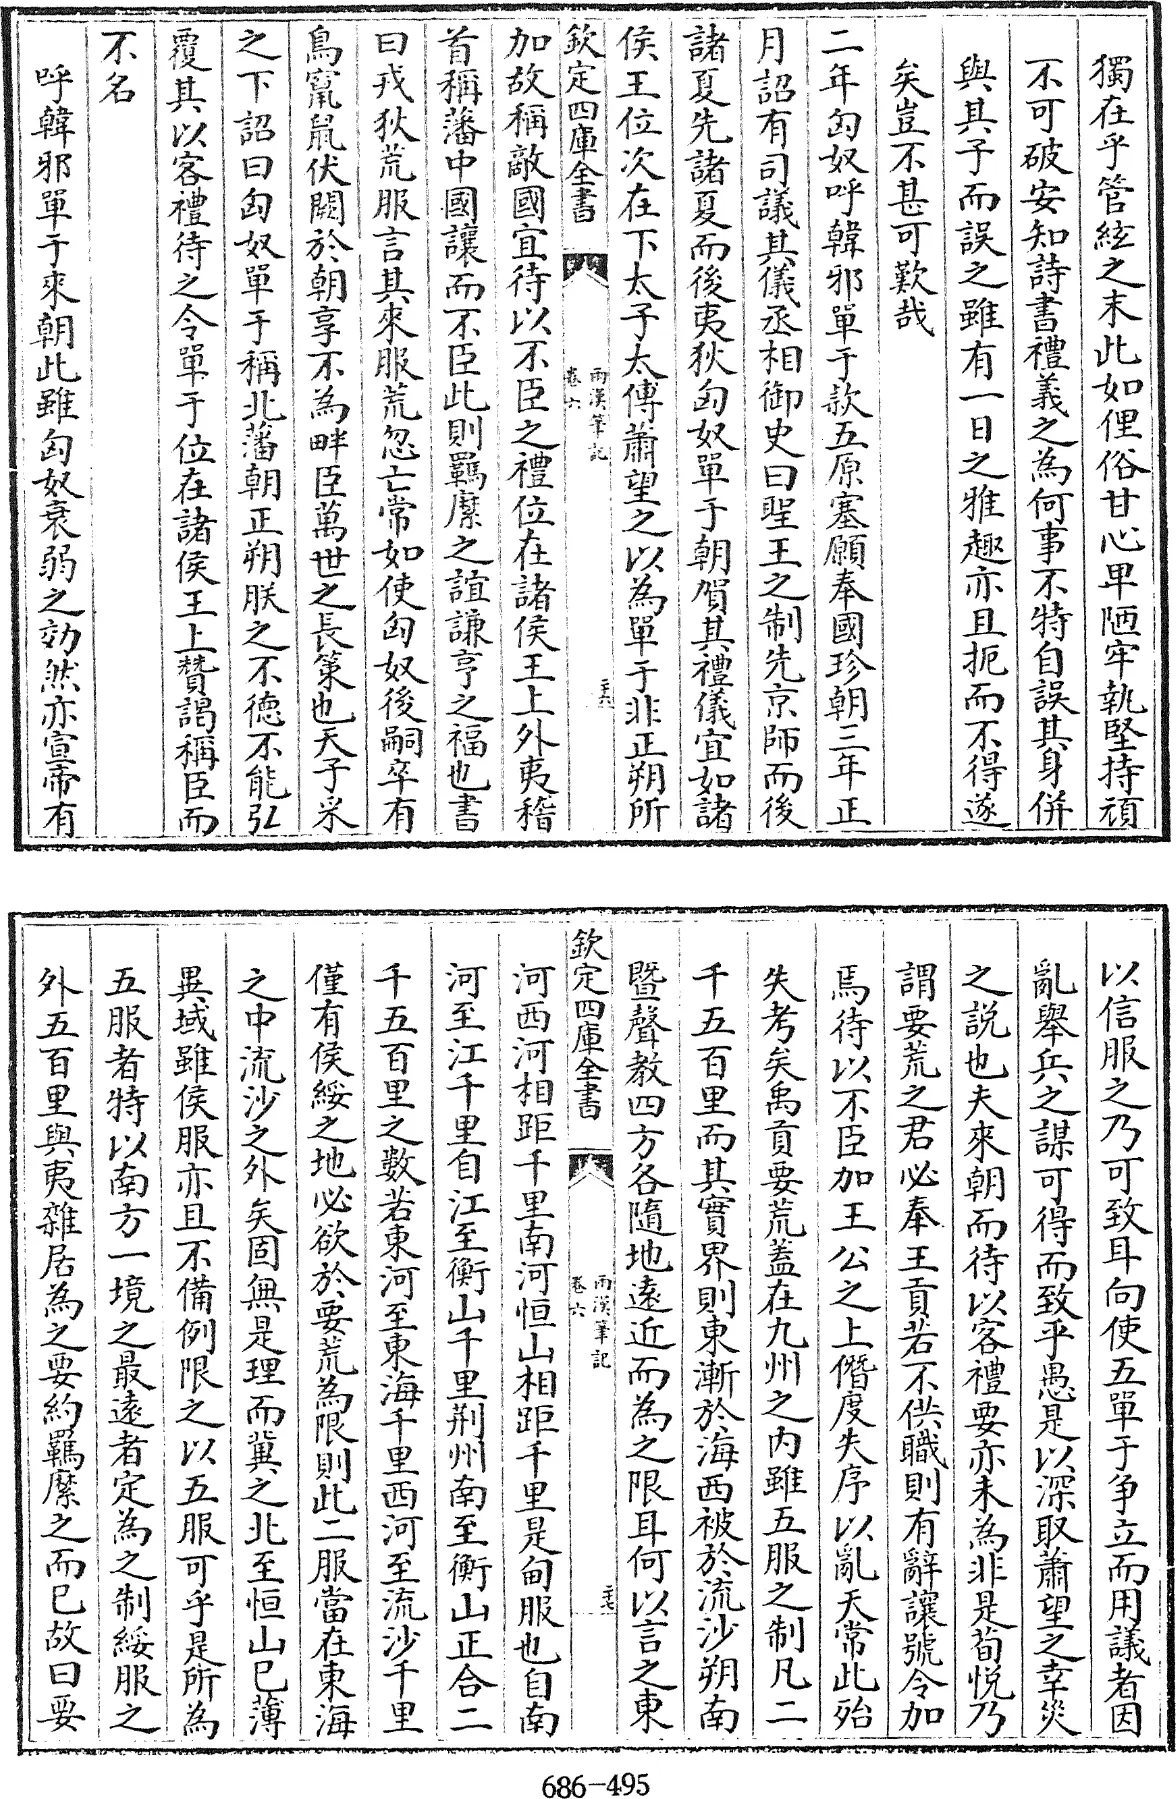 獨在乎管絃之末此如俚俗甘心卑陋牢執堅持頑
不可破安知詩書禮義之為何事不特自誤其身併
與其子而誤之雖有一日之雅趣亦且扼而不得遂
矣豈不甚可歎哉
二年匈奴呼韓邪單于款五原塞願奉國珍朝三年正
月詔有司議其儀丞相御史曰聖王之制先京師而後
諸夏先諸夏而後夷狄匈奴單于朝賀其禮儀宜如諸
侯王位次在下太子太傅蕭望之以為單于非正朔所
欽定四庫全書
兩漢筆記
卷六
二十六
加故稱敵國宜待以不臣之禮位在諸侯王上外夷稽
首稱藩中國讓而不臣此則羈縻之誼謙亨之福也書
曰戎狄荒服言其來服荒忽亡常如使匈奴後嗣卒有
鳥竄鼠伏闕於朝享不為畔臣萬世之長策也天子采
之下詔曰匈奴單于稱北藩朝正朔朕之不德不能弘
覆其以客禮待之令單于位在諸侯王上贊謁稱臣而
不名
呼韓邪單于來朝此雖匈奴衰弱之効然亦宣帝有
以信服之乃可致耳向使五單于争立而用議者因
亂舉兵之謀可得而致乎愚是以深取蕭望之幸災
之説也夫來朝而待以客禮要亦未為非是荀悦乃
謂要荒之君必奉王貢若不供職則有辭讓號令加
焉待以不臣加王公之上僭度失序以亂天常此殆
失考矣禹貢要荒蓋在九州之内雖五服之制凡二
千五百里而其實界則東漸於海西被於流沙朔南
暨聲教四方各隨地遠近而為之限耳何以言之東
欽定四庫全書
兩漢筆記
卷六
二十七
河西河相距千里南河恒山相距千里是甸服也自南
河至江千里自江至衡山千里荆州南至衡山正合二
千五百里之數若東河至東海千里西河至流沙千里
僅有侯綏之地必欲於要荒為限則此二服當在東海
之中流沙之外矣固無是理而冀之北至恒山已薄
異域雖侯服亦且不備例限之以五服可乎是所為
五服者特以南方一境之最遠者定為之制綏服之
外五百里與夷雜居為之要約羈縻之而已故曰要
686-495